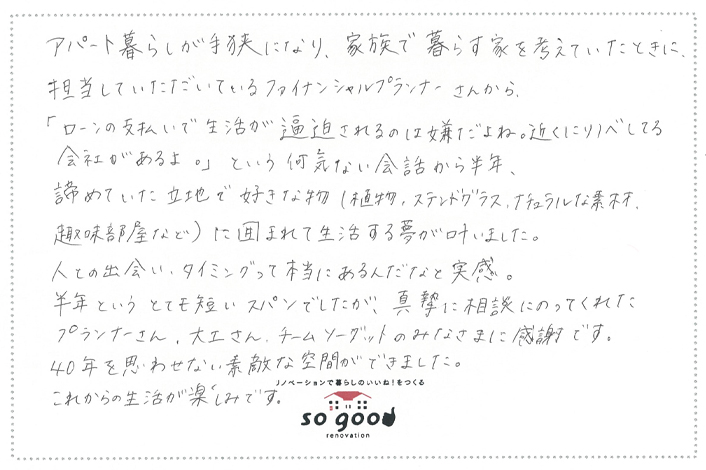 アパート暮らしが手狭になり、家族で暮らす家を考えていたときに、
担当していただいているファイナンシャルプランナーさんから、
「ローンの支払いで生活が逼迫されるのは嫌だよね。近くにリノベしてる
会社があるよ。」という何気ない会話から半年、
諦めていた立地で好きな物(植物、ステンドグラス、ナチュラルな素材、
趣味部屋など)に囲まれて生活する夢が叶いました。
人との出会い、タイミングって本当にあるんだなと実感。
半年というとても短いスパンでしたが、真摯に相談にのってくれた
プランナーさん、大工さん、チームソーグットのみなさまに感謝です。
40年を思わせない素敵な空間ができました。
これからの生活が楽しみです。
リノベーションで暮らしのいいね!をつくる
so good
renovation